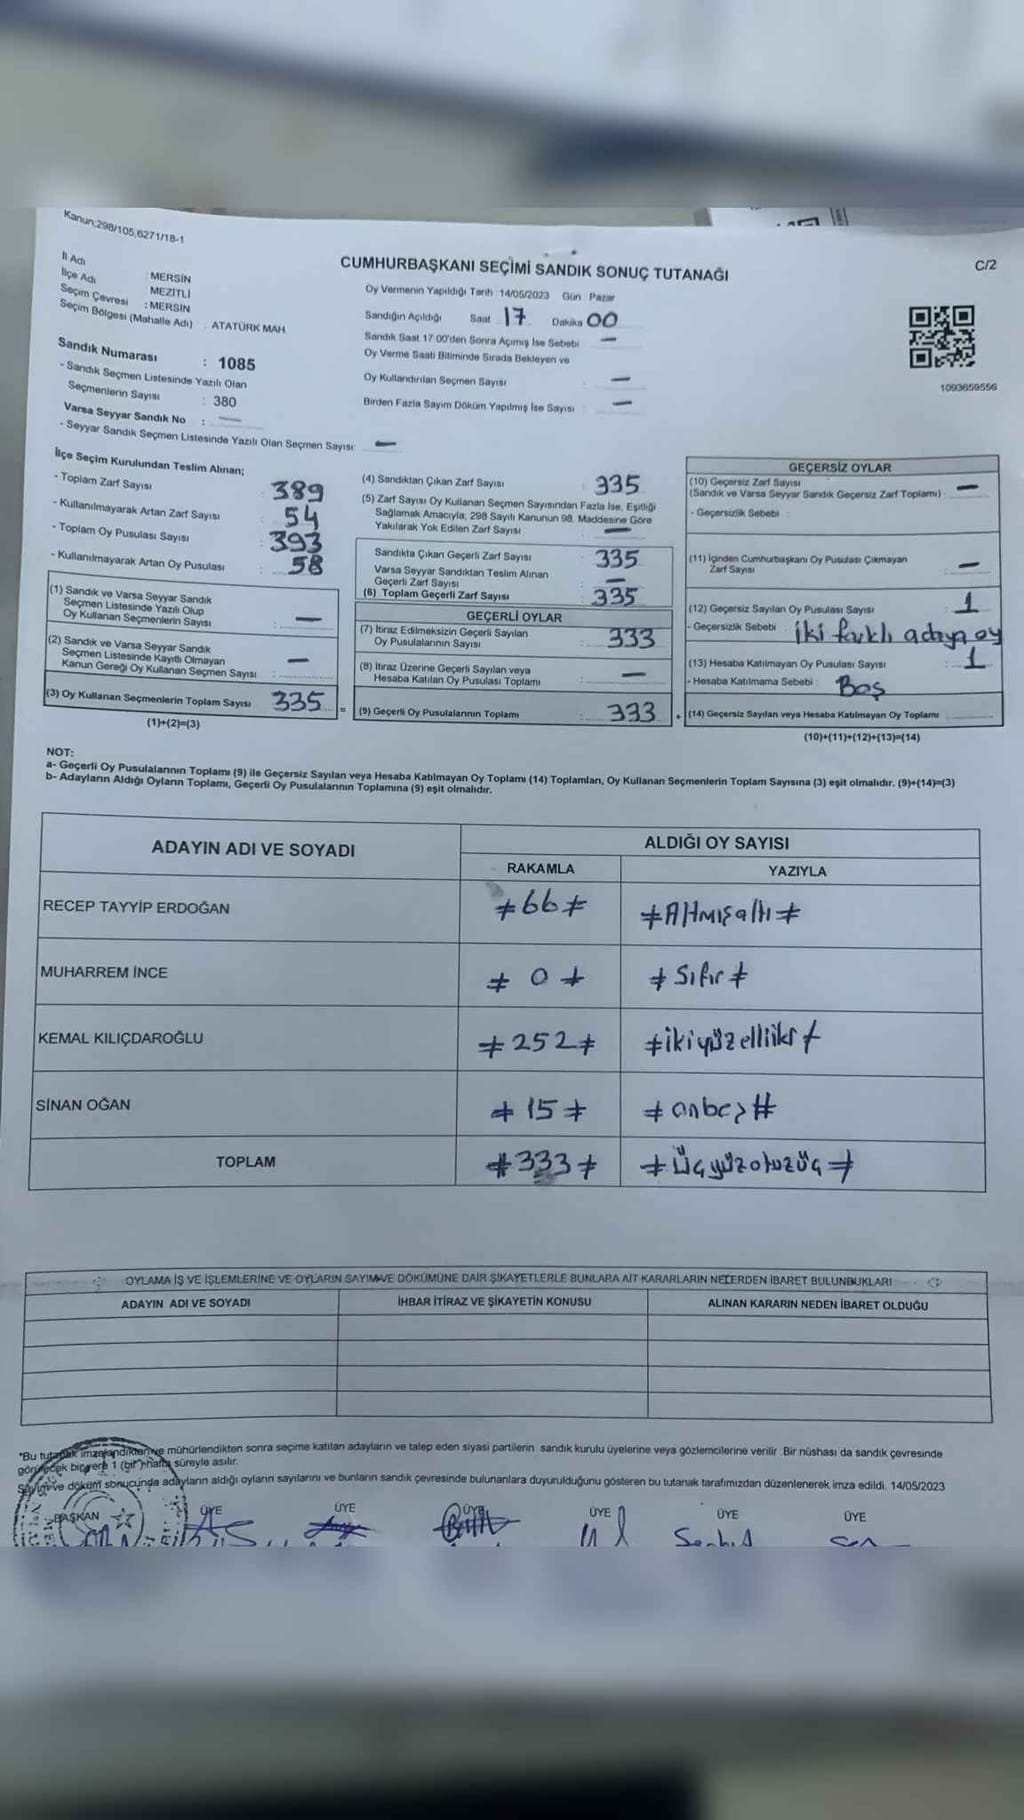 Kanun;298/105,6271/18-1
C/2
CUMHURBAŞKANI SEÇİMİ SANDIK SONUÇ TUTANAĞI
İl Adı : MERSİN
İlçe Adı : MEZİTLİ
Seçim Çevresi : MERSİN
Seçim Bölgesi (Mahalle Adı) : ATATÜRK MAH.
Sandık Numarası : 1085
- Sandık Seçmen Listesinde Yazılı Olan
Seçmenlerin Sayısı : 380
Varsa Seyyar Sandık No : —
- Seyyar Sandık Seçmen Listesinde Yazılı Olan Seçmen Sayısı —
Oy Vermenin Yapıldığı Tarih :14/05/2023 Gün : Pazar
Sandığın Açıldığı Saat 17 Dakika 00
Sandık Saat 17:00'den Sonra Açımış İse Sebebi —
Oy Verme Saati Bitiminde Sırada Bekleyen ve
Oy Kullandırılan Seçmen Sayısı : —
Birden Fazla Sayım Döküm Yapılmış İse Sayısı : —
1093659556
İlçe Seçim Kurulundan Teslim Alınan;
- Toplam Zarf Sayısı : 389
- Kullanılmayarak Artan Zarf Sayısı : 54
- Toplam Oy Pusulası Sayısı : 393
- Kullanılmayarak Artan Oy Pusulası : 58
(1) Sandık ve Varsa Seyyar Sandık
Seçmen Listesinde Yazılı Olup
Oy Kullanan Seçmenlerin Sayısı : —
(2) Sandık ve Varsa Seyyar Sandık
Seçmen Listesinde Kayıtlı Olmayan
Kanun Gereği Oy Kullanan Seçmen Sayısı : —
(3) Oy Kullanan Seçmenlerin Toplam Sayısı 335
(1)+(2)=(3)
(4) Sandıktan Çıkan Zarf Sayısı : 335
(5) Zarf Sayısı Oy Kullanan Seçmen Sayısından Fazla İse, Eşitliği
Sağlamak Amacıyla; 298 Sayılı Kanunun 98. Maddesine Göre
Yakılarak Yok Edilen Zarf Sayısı : —
Sandıkta Çıkan Geçerli Zarf Sayısı : 335
Varsa Seyyar Sandıktan Teslim Alınan
Geçerli Zarf Sayısı : —
(6) Toplam Geçerli Zarf Sayısı : 335
GEÇERLİ OYLAR
(7) İtiraz Edilmeksizin Geçerli Sayılan
Oy Pusulalarının Sayısı : 333
(8) İtiraz Üzerine Geçerli Sayılan veya
Hesaba Katılan Oy Pusulası Toplamı : —
= (9) Geçerli Oy Pusulalarının Toplamı : 333 +
GEÇERSİZ OYLAR
(10) Geçersiz Zarf Sayısı
(Sandık ve Varsa Seyyar Sandık Geçersiz Zarf Toplamı) : —
- Geçersizlik Sebebi :
(11) İçinden Cumhurbaşkanı Oy Pusulası Çıkmayan
Zarf Sayısı : —
(12) Geçersiz Sayılan Oy Pusulası Sayısı : 1
- Geçersizlik Sebebi : iki farklı adaya oy
(13) Hesaba Katılmayan Oy Pusulası Sayısı : 1
- Hesaba Katılmama Sebebi : Boş
(14) Geçersiz Sayılan veya Hesaba Katılmayan Oy Toplamı :
(10)+(11)+(12)+(13)=(14)
NOT:
a- Geçerli Oy Pusulalarının Toplamı (9) ile Geçersiz Sayılan veya Hesaba Katılmayan Oy Toplamı (14) Toplamları, Oy Kullanan Seçmenlerin Toplam Sayısına (3) eşit olmalıdır. (9)+(14)=(3)
b- Adayların Aldığı Oyların Toplamı, Geçerli Oy Pusulalarının Toplamına (9) eşit olmalıdır.
ADAYIN ADI VE SOYADI ALDIĞI OY SAYISI
RAKAMLA YAZIYLA
RECEP TAYYİP ERDOĞAN ≠66≠ ≠Altmışaltı≠
MUHARREM İNCE ≠ 0 ≠ ≠ Sıfır ≠
KEMAL KILIÇDAROĞLU ≠252≠ ≠ikiyüzelliiki≠
SİNAN OĞAN ≠ 15 ≠ ≠ onbeş #
TOPLAM #333≠ ≠üçyüzotuzüç≠
OYLAMA İŞ VE İŞLEMLERİNE VE OYLARIN SAYIM VE DÖKÜMÜNE DAİR ŞİKAYETLERLE BUNLARA AİT KARARLARIN NELERDEN İBARET BULUNDUKLARI
ADAYIN ADI VE SOYADI İHBAR İTİRAZ VE ŞİKAYETİN KONUSU ALINAN KARARIN NEDEN İBARET OLDUĞU
*Bu tutanak imzalandıktan ve mühürlendikten sonra seçime katılan adayların ve talep eden siyasi partilerin sandık kurulu üyelerine veya gözlemcilerine verilir .Bir nüshası da sandık çevresinde
görülecek bir yere 1 (bir ) hafta süreyle asılır.
Sayım ve döküm sonucunda adayların aldığı oyların sayılarını ve bunların sandık çevresinde bulunanlara duyurulduğunu gösteren bu tutanak tarafımızdan düzenlenerek imza edildi. 14/05/2023
BAŞKAN ÜYE ÜYE ÜYE ÜYE ÜYE ÜYE